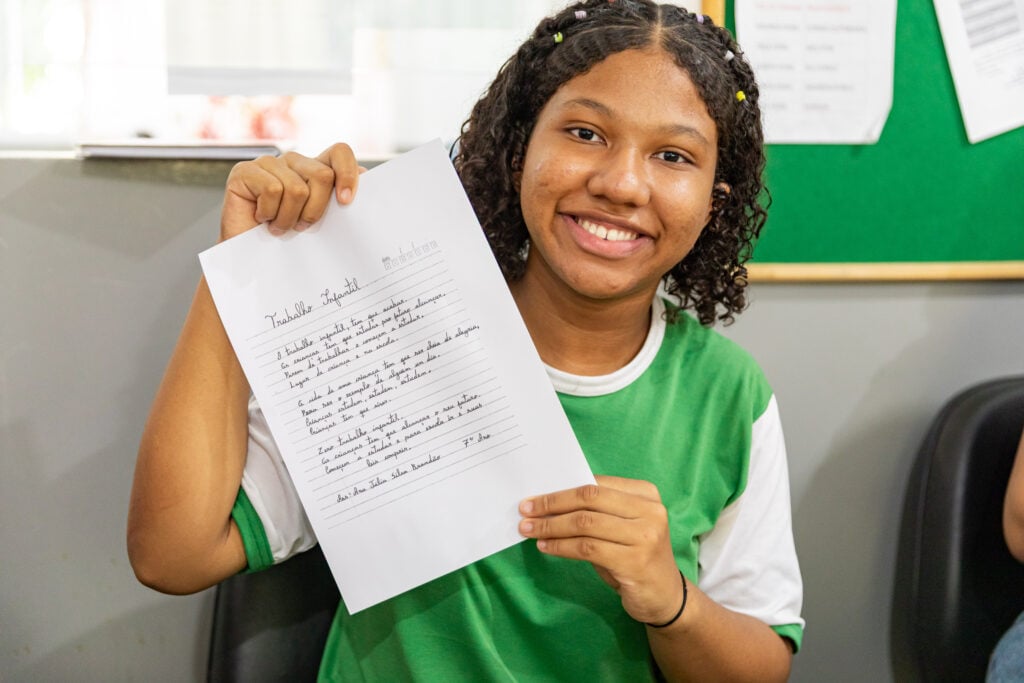 Trabalho Infantil
O trabalho infantil, tem que acabar.
As crianças tem que estudar pro futuro alcançar.
Parem de trabalhar e começem a estudar.
Lugar de criança e na escola.
A vida de uma criança tem que ser cheia de alegria,
Para ser o exemplo de alguém um dia.
Crianças estudem, estudem, estudem.
Crianças tem que
Zero trabalho infantil.
As crianças tem que alcançar o seu futuro.
Começem a estudar e para escola ir e suas
leis cumprir.
Ass: Ana Júlia Silva Brandão 7º Ano